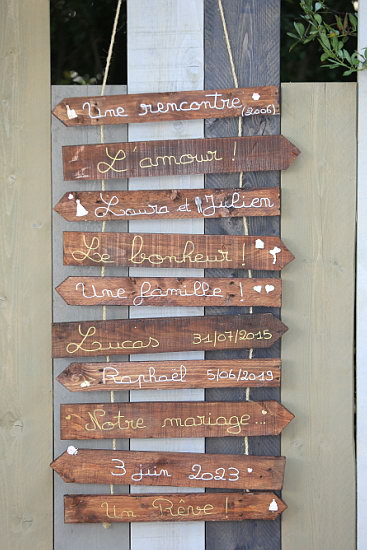 Une rencontre (2006)
L'amour !
Laura et Julien
Le bonheur !
Une famille !
Lucas 31/07/2015
Raphaël 5/06/2019
Notre mariage...
3 juin 2023
Un Rêve !